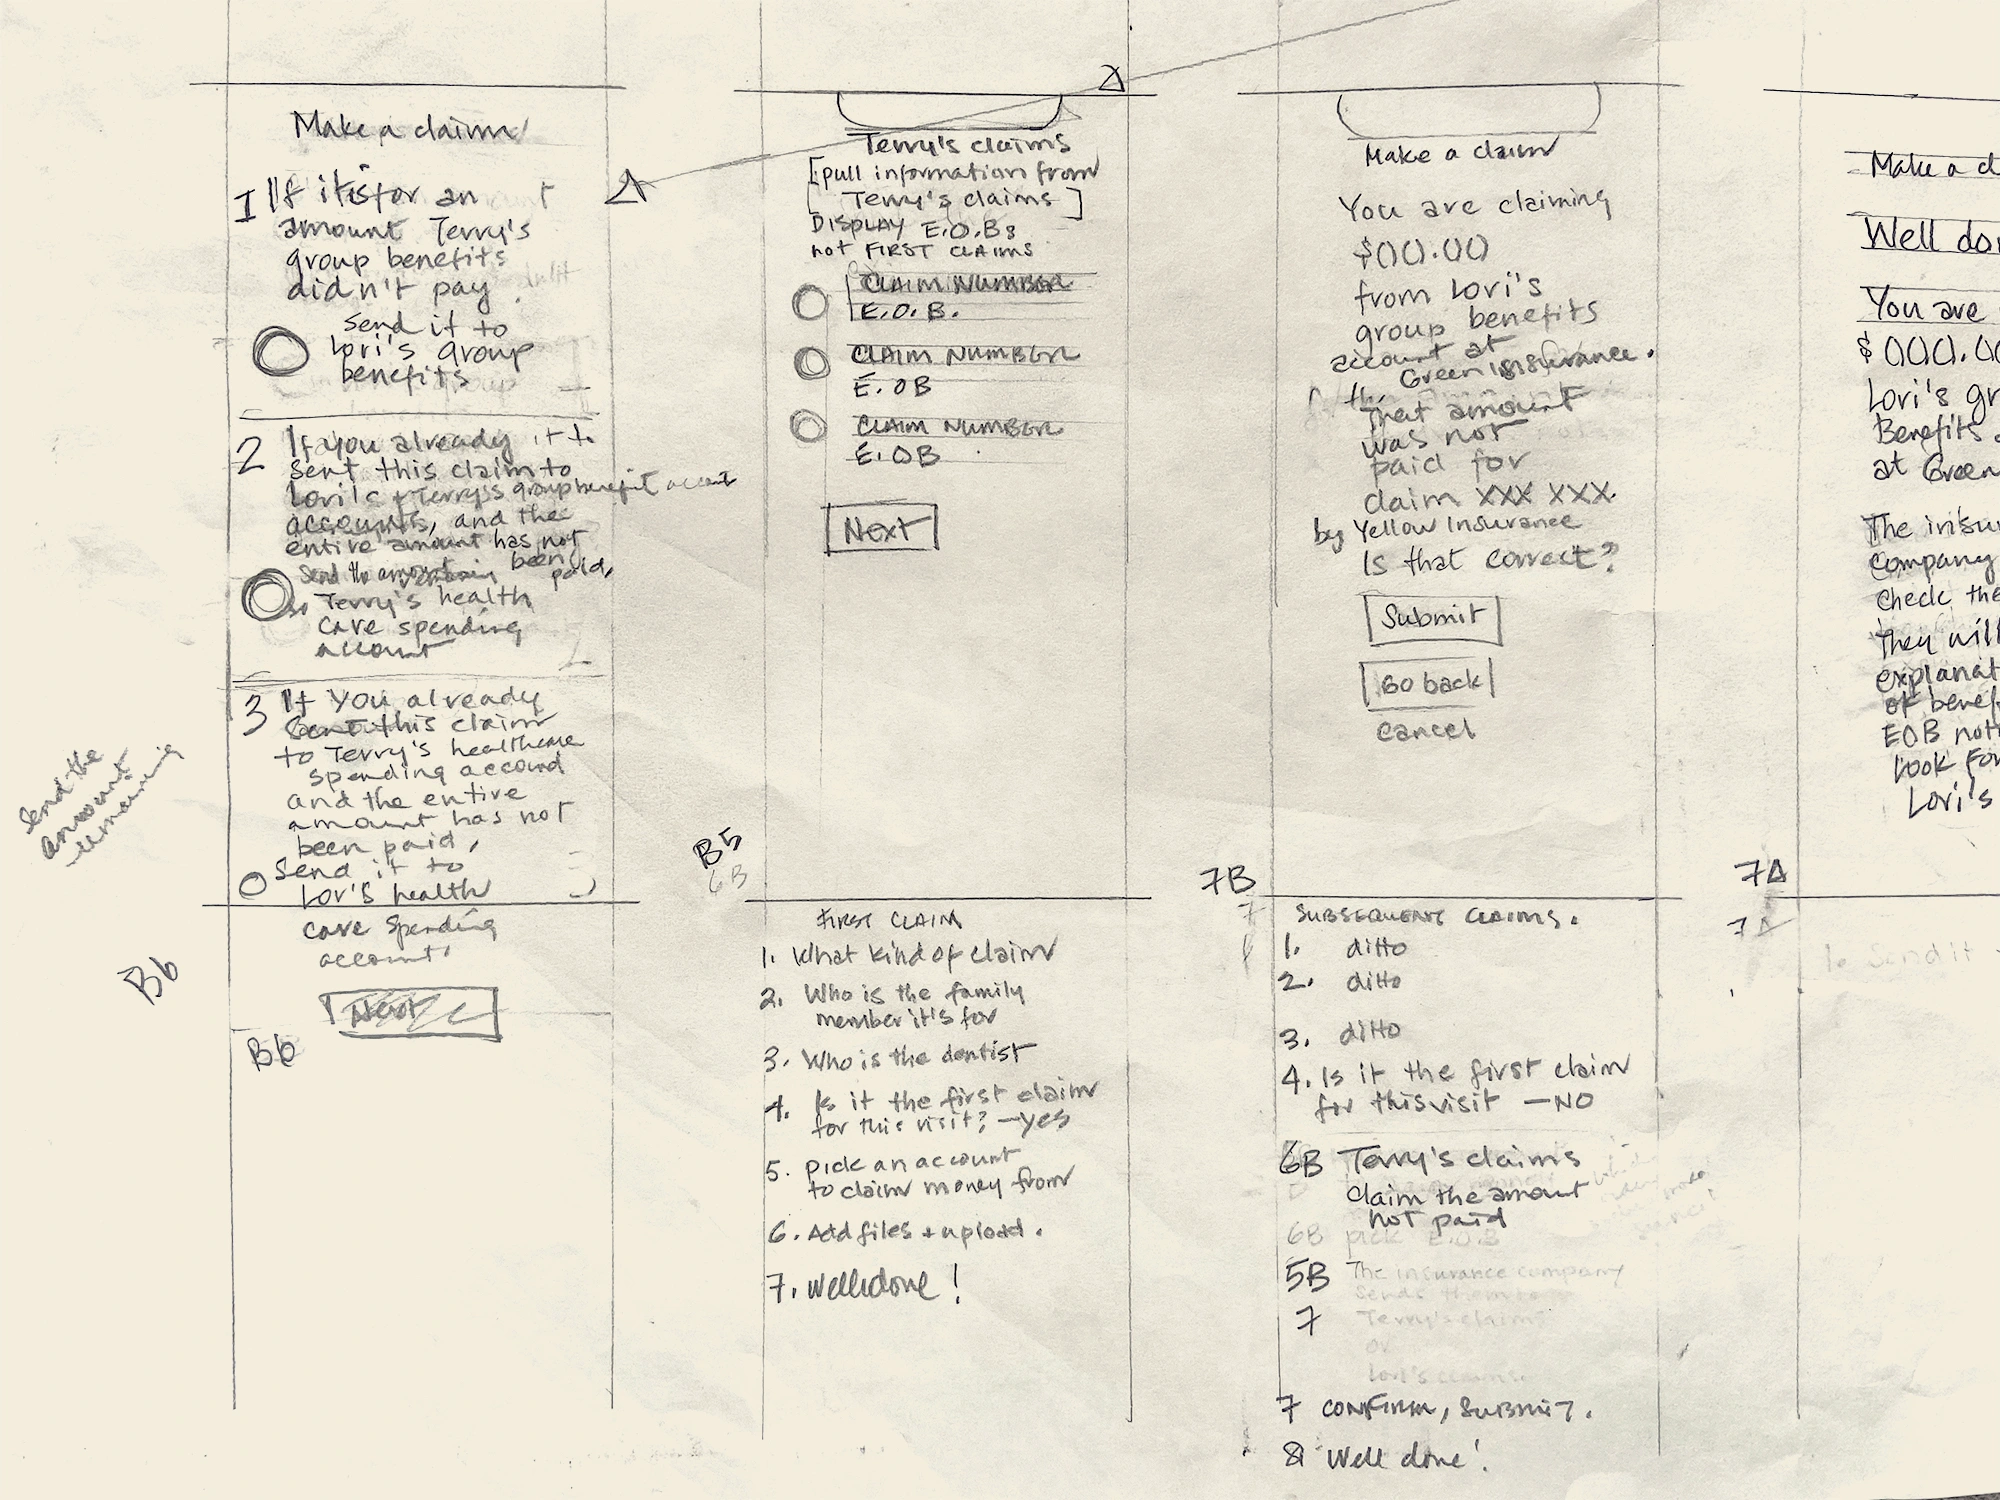 Make a claim
1 If it is for an
amount Terry's
group benefits
didn't pay
send it to
Lori's group
benefits
2 If you already
sent this claim to
Lori's + Terry's group benefit account
accounts, and the
entire amount has not
been
paid,
Send the amount
Terry's health
care spending
account
3 If you already
sent this claim
to Terry's healthcare
spending account
and the entire
amount has not
been paid,
Send it to
Lori's health
care spending
account
Next
B6
B6
Send the
amount
remaining
Terry's claims
[pull information from
Terry's claims]
DISPLAY E.O.Bs
not FIRST CLAIMS
CLAIM NUMBER
E.O.B.
CLAIM NUMBER
E.OB
CLAIM NUMBER
E.OB
Next
B5
6B
FIRST CLAIM
1. What kind of claim
2. Who is the family
member it's for
3. Who is the dentist
4. Is it the first claim
for this visit? —yes
5. pick an account
to claim money from
6. Add files + upload.
7. Well done!
Make a claim
You are claiming
$00.00
from Lori's
group benefits
account at
Green insurance.
That amount
was not
paid for
claim XXX XXX
by Yellow Insurance
Is that correct?
Submit
Go back
cancel
7B
7
SUBSEQUENT CLAIMS.
1. ditto
2. ditto
3. ditto
4. Is it the first claim
for this visit —NO
6B Terry's claims
claim the amount
not paid
6B pick E.O.B
5B The insurance company
sends them
7 Terry's claims
or
Lori's claims.
7 CONFIRM, SUBMIT.
8 Well done!
Make a
Well
You are
$000.00
Lori's
Benefits
at Green
The
company
check the
they will
of
EOB
Look for
Lori's
7A
7A
Send it